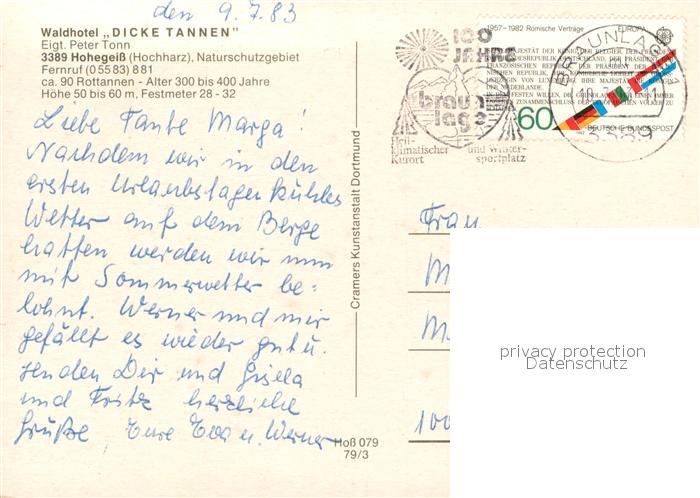 den 9.7.83
Waldhotel „DICKE TANNEN"
Eigt. Peter Tonn
3389 Hohegeiß (Hochharz), Naturschutzgebiet
Fernruf (0 55 83) 8 81
ca. 90 Rottannen - Alter 300 bis 400 Jahre
Höhe 50 bis 60 m, Festmeter 28 - 32
Liebe Tante Marga!
Nachdem wir in den
ersten Urlaubstagen kühles
Wetter auf dem Berge
hatten werden wir nun
mit Sommerwetter be-
lohnt. Werner und mir
gefällt es wieder gut u.
senden Dir und Gisela
und Fritz herzliche
Grüße Eure Eva u. Werner
Hoß 079
79/3
Cramers Kunstanstalt Dortmund
100
JAHRE
braun
lage
Heil-
klimatischer
Kurort
und Winter-
sportplatz
1957-1982 Römische Verträge EUROPA
60
DEUTSCHE BUNDESPOST
BRAUNLAGE 1
3389
Frau
M
M
100
privacy protection
Datenschutz